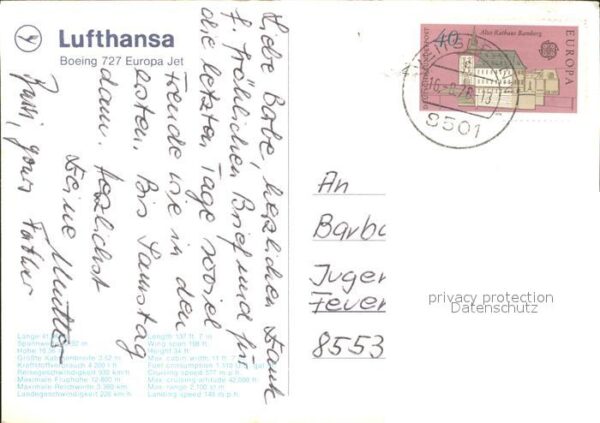 Lufthansa
Boeing 727 Europa Jet
Liebe Babe, herzlichen Dank
f. fröhlichen Brief und für
die letzten Tage soviel
Freude wie in den
ersten. Bis Samstag
dann. Herzlichst
Deine Mutter
Bussi, yours Father
40
Altes Rathaus Bamberg
EUROPA
DEUTSCHE BUNDESPOST
8501
An
Barba
Jugen
Feuer
8553
privacy protection
Datenschutz
Länge
Höhe
Größte Kabinenbreite 3.52 m
Kraftstoffverbrauch 4 200 l
Reisegeschwindigkeit 930 km/h
Maximale Flughöhe 12 800 m
Maximale Reichweite 3 380 km
Landegeschwindigkeit 226 km/h
Length 131 ft. 7 in
Wing span 108 ft.
Height 34 ft.
Max. cabin width 11 ft. 7
Fuel consumption 1 110 gal
Cruising speed 577 m.p.h.
Max. cruising-altitude 42,000 ft.
Max. range 2,100 st. m
Landing speed 140 m.p.h.